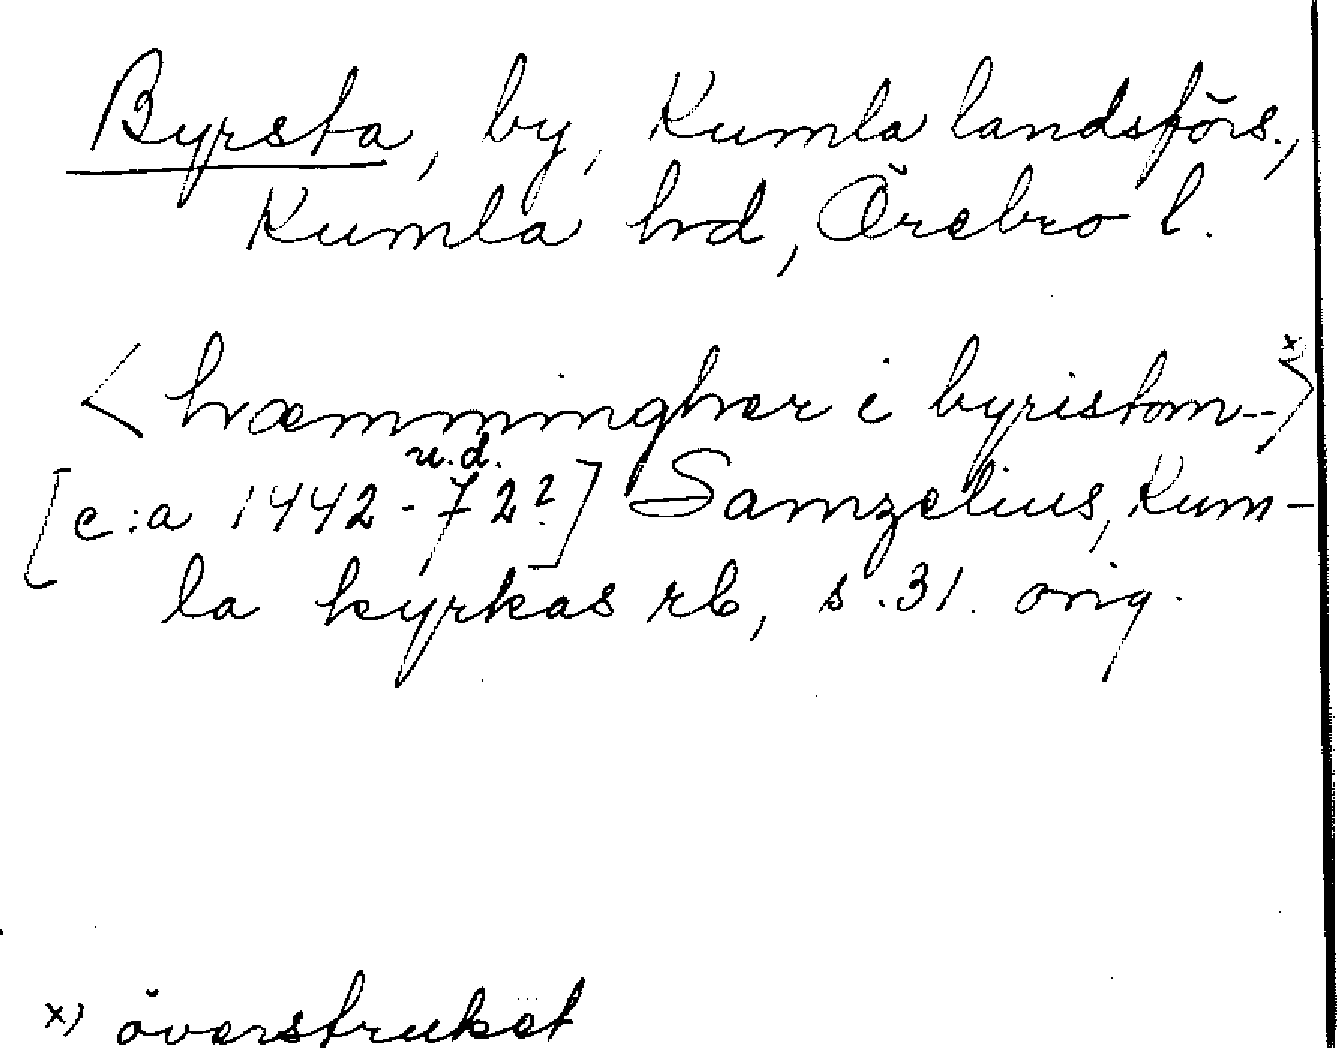 Byrsta, by, Kumla landsförs.,
Kumla hd, Örebro l.
<hæmmingher i byristom--> x)
u.d.
[c:a 1442-72?] Samzelius, Kum-
la kyrkas rb, s.31. orig.
x) överstruket